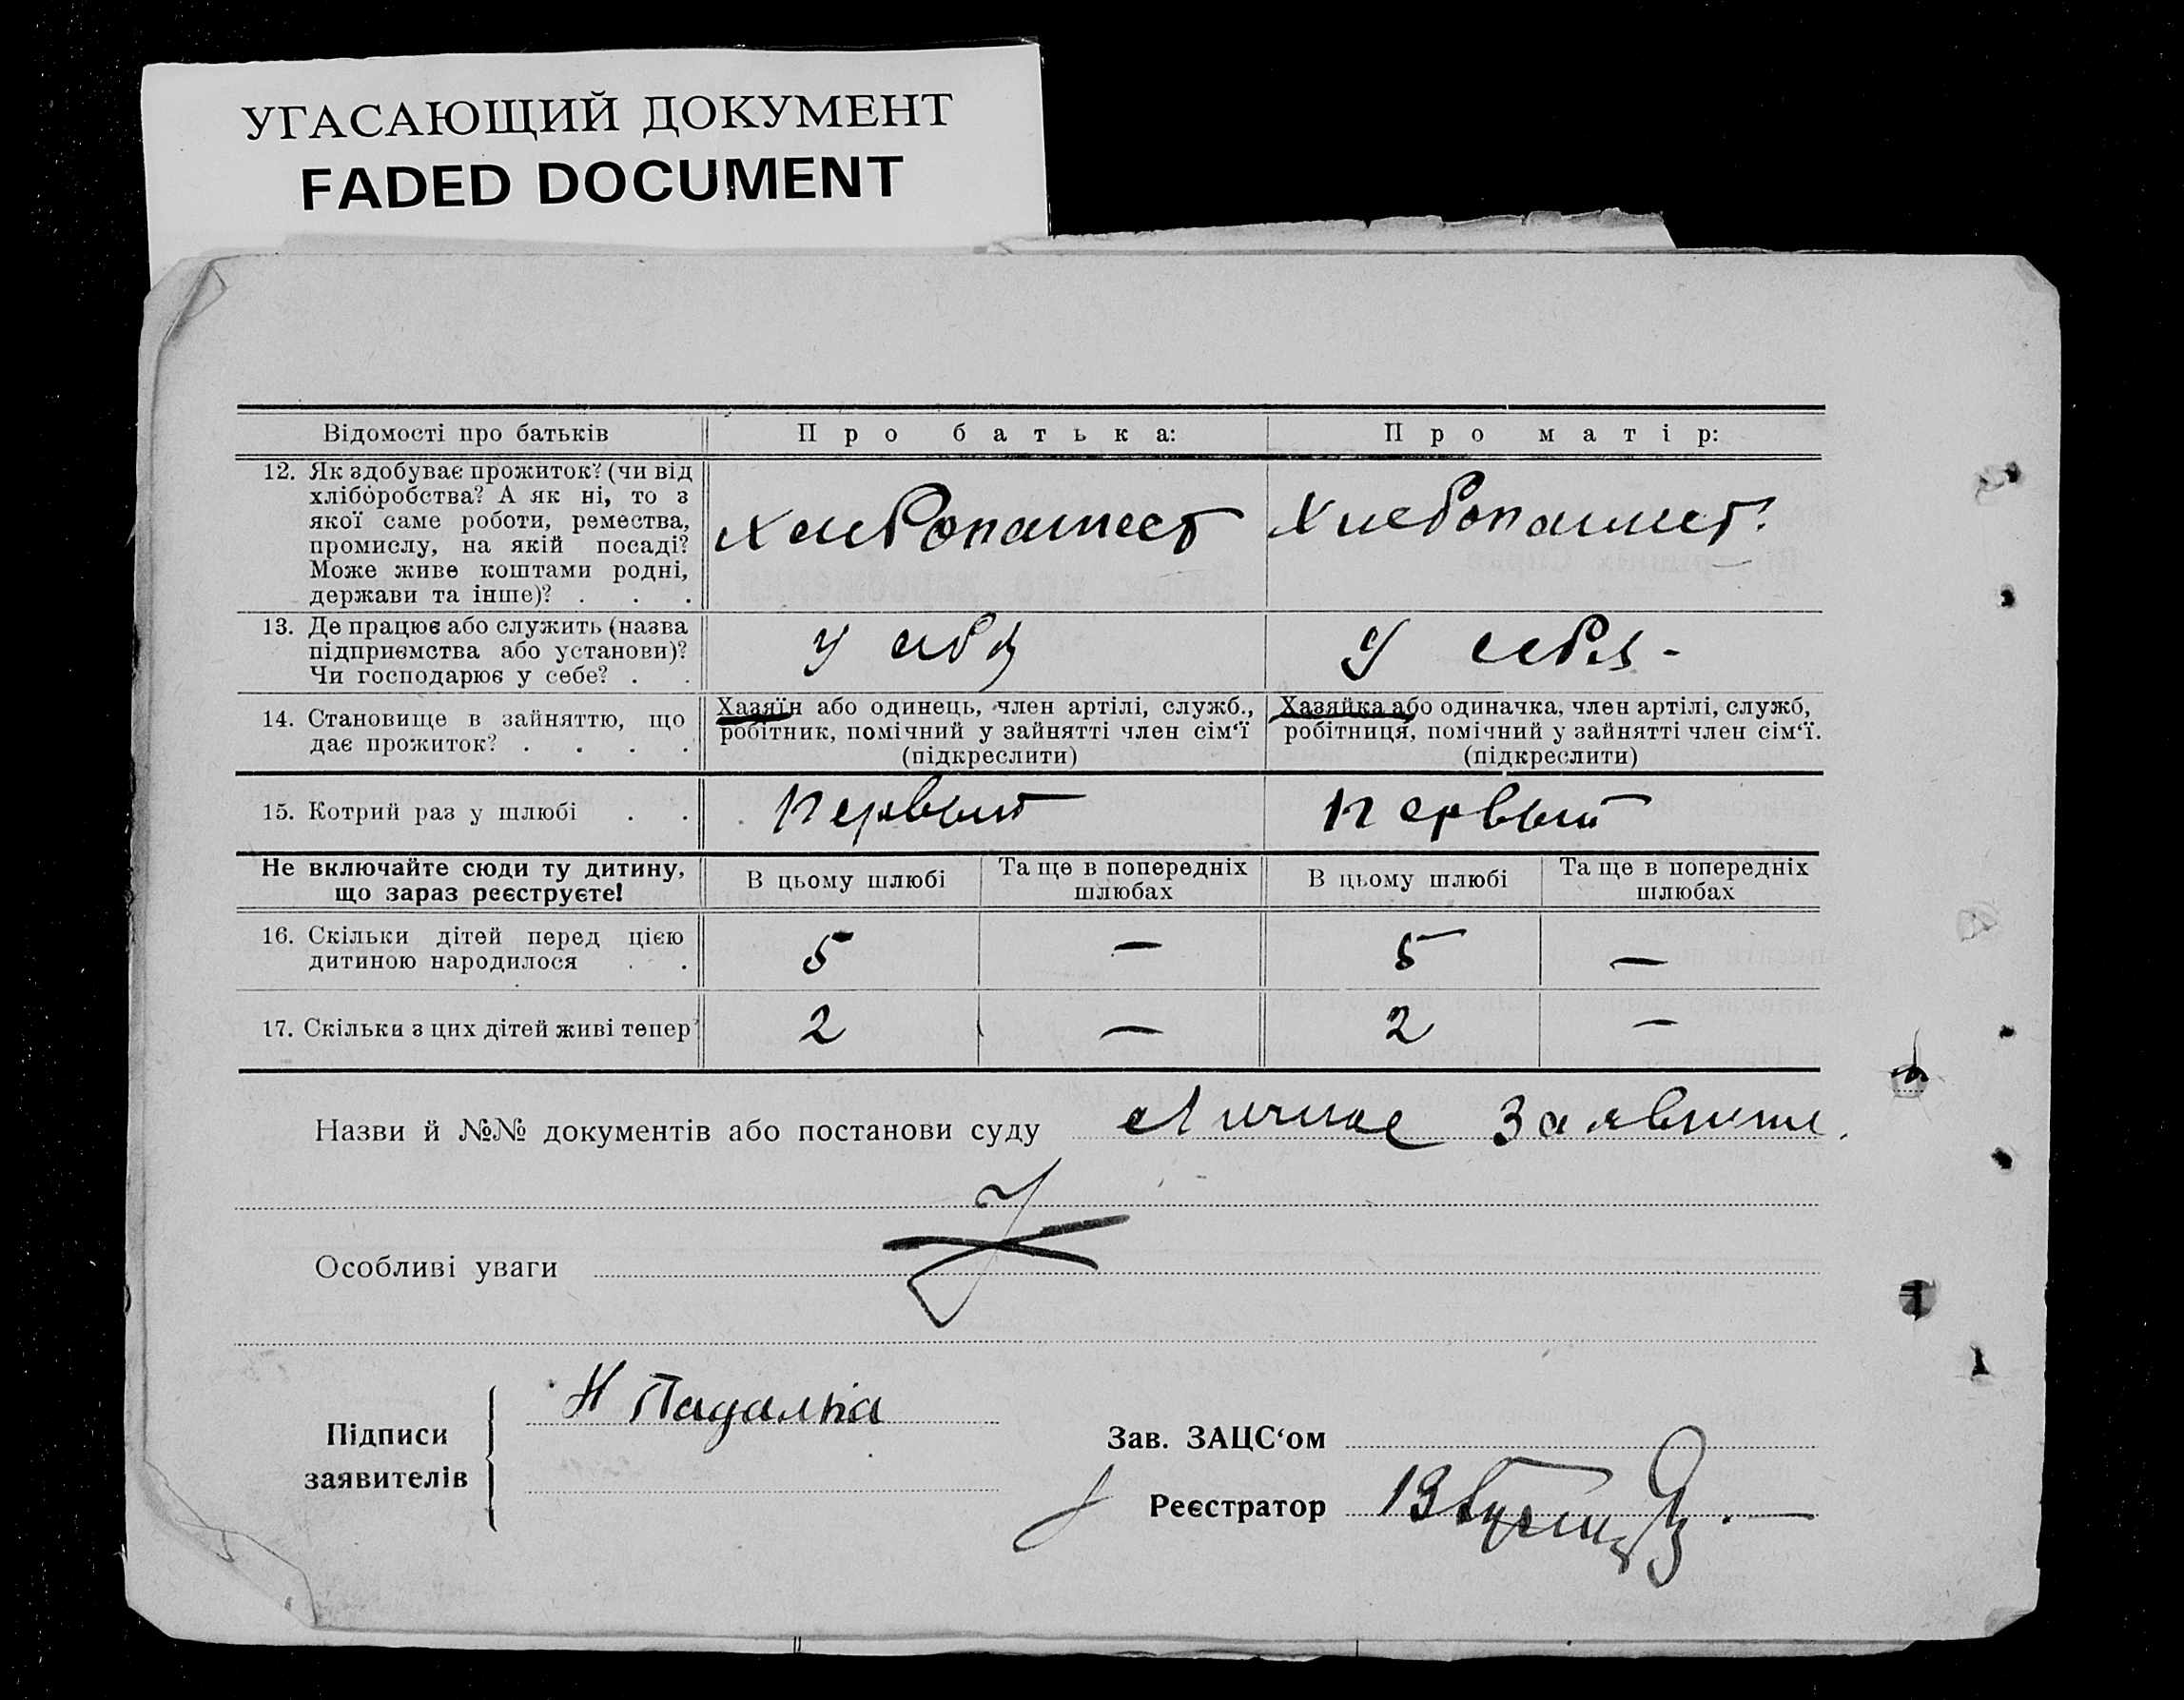 УГАСАЮЩИЙ ДОКУМЕНТ
FADED DOCUMENT
Відомості про батьків
Про батька:
Про матір:
12. Як здобуває прожиток? (чи від
хліборобства? А як ні, то з
якої саме роботи, ремества,
промислу, на якій посаді?
Може живе коштами родні,
держави та інше)? . . .
Хлебопашест
Хлебопашест.
13. Де працює або служить (назва
підприємства або установи)?
Чи господарює у себе? . .
У себя
У себя -
14. Становище в зайняттю, що
дає прожиток? . . . .
Хазяїн або одинець, член артілі, служб.,
робітник, помічний у зайнятті член сім‘ї
(підкреслити)
Хазяйка або одиначка, член артілі, служб,
робітниця, помічний у зайнятті член сім‘ї.
(підкреслити)
15. Котрий раз у шлюбі . .
Первый
Первый
Не включайте сюди ту дитину,
що зараз реєструєте!
В цьому шлюбі
Та ще в попередніх
шлюбах
В цьому шлюбі
Та ще в попередніх
шлюбах
16. Скільки дітей перед цією
дитиною народилося . .
5
—
5
—
17. Скільки з цих дітей живі тепер
2
—
2
—
Назви й №№ документів або постанови суду Личное
Особливі уваги
Підписи
заявителів
Н Падалка
Зав. ЗАЦС‘ом
Реєстратор